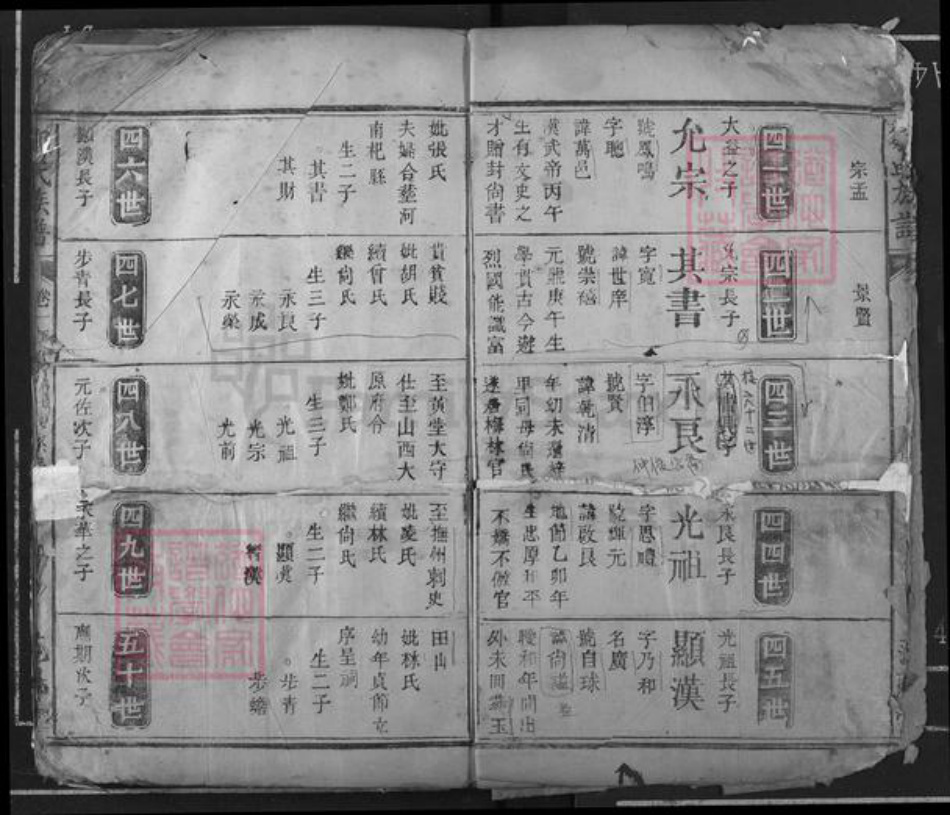 宗孟
景賢
四一世
大益之子
允宗
號鳳鳴
字聰
諱萬邑
漢武帝丙午
生有文史之
才贈封尚書
妣張氏
夫婦合塟河
南杞縣
生二子
其書
其財
四二世
允宗長子
其書
字寬
諱世庠
號崇禧
元鼎庚午生
學貫古今遊
烈國能識富
貴貧賤
妣胡氏
續曾氏
繼尙氏
生三子
永良
永成
永榮
四三世
其書長子
永良
字伯淳
號賢
諱乾清
年幼未
里同母尙氏
遂
梅林官
至黃堂大守
仕至山西大
原府合
妣鄭氏
生三子
光祖
光宗
光前
四四世
永良長子
光祖
字思
號輝元
諱啟良
地節乙卯年
生忠厚和平
不驕不傲官
至撫州刺史
妣凌氏
續林氏
繼尙氏
生二子
顯漢
四五世
光祖長子
顯漢
字乃和
名廣
號自球
諱尙
和年間出
外未回
玉
田山
妣林氏
幼年貞節立
序呈詞
生二子
步青
步蟾
四六世
顯漢長子
四七世
步青長子
四八世
元佐次子
四九世
華之子
五十世
應期次子
氏族譜